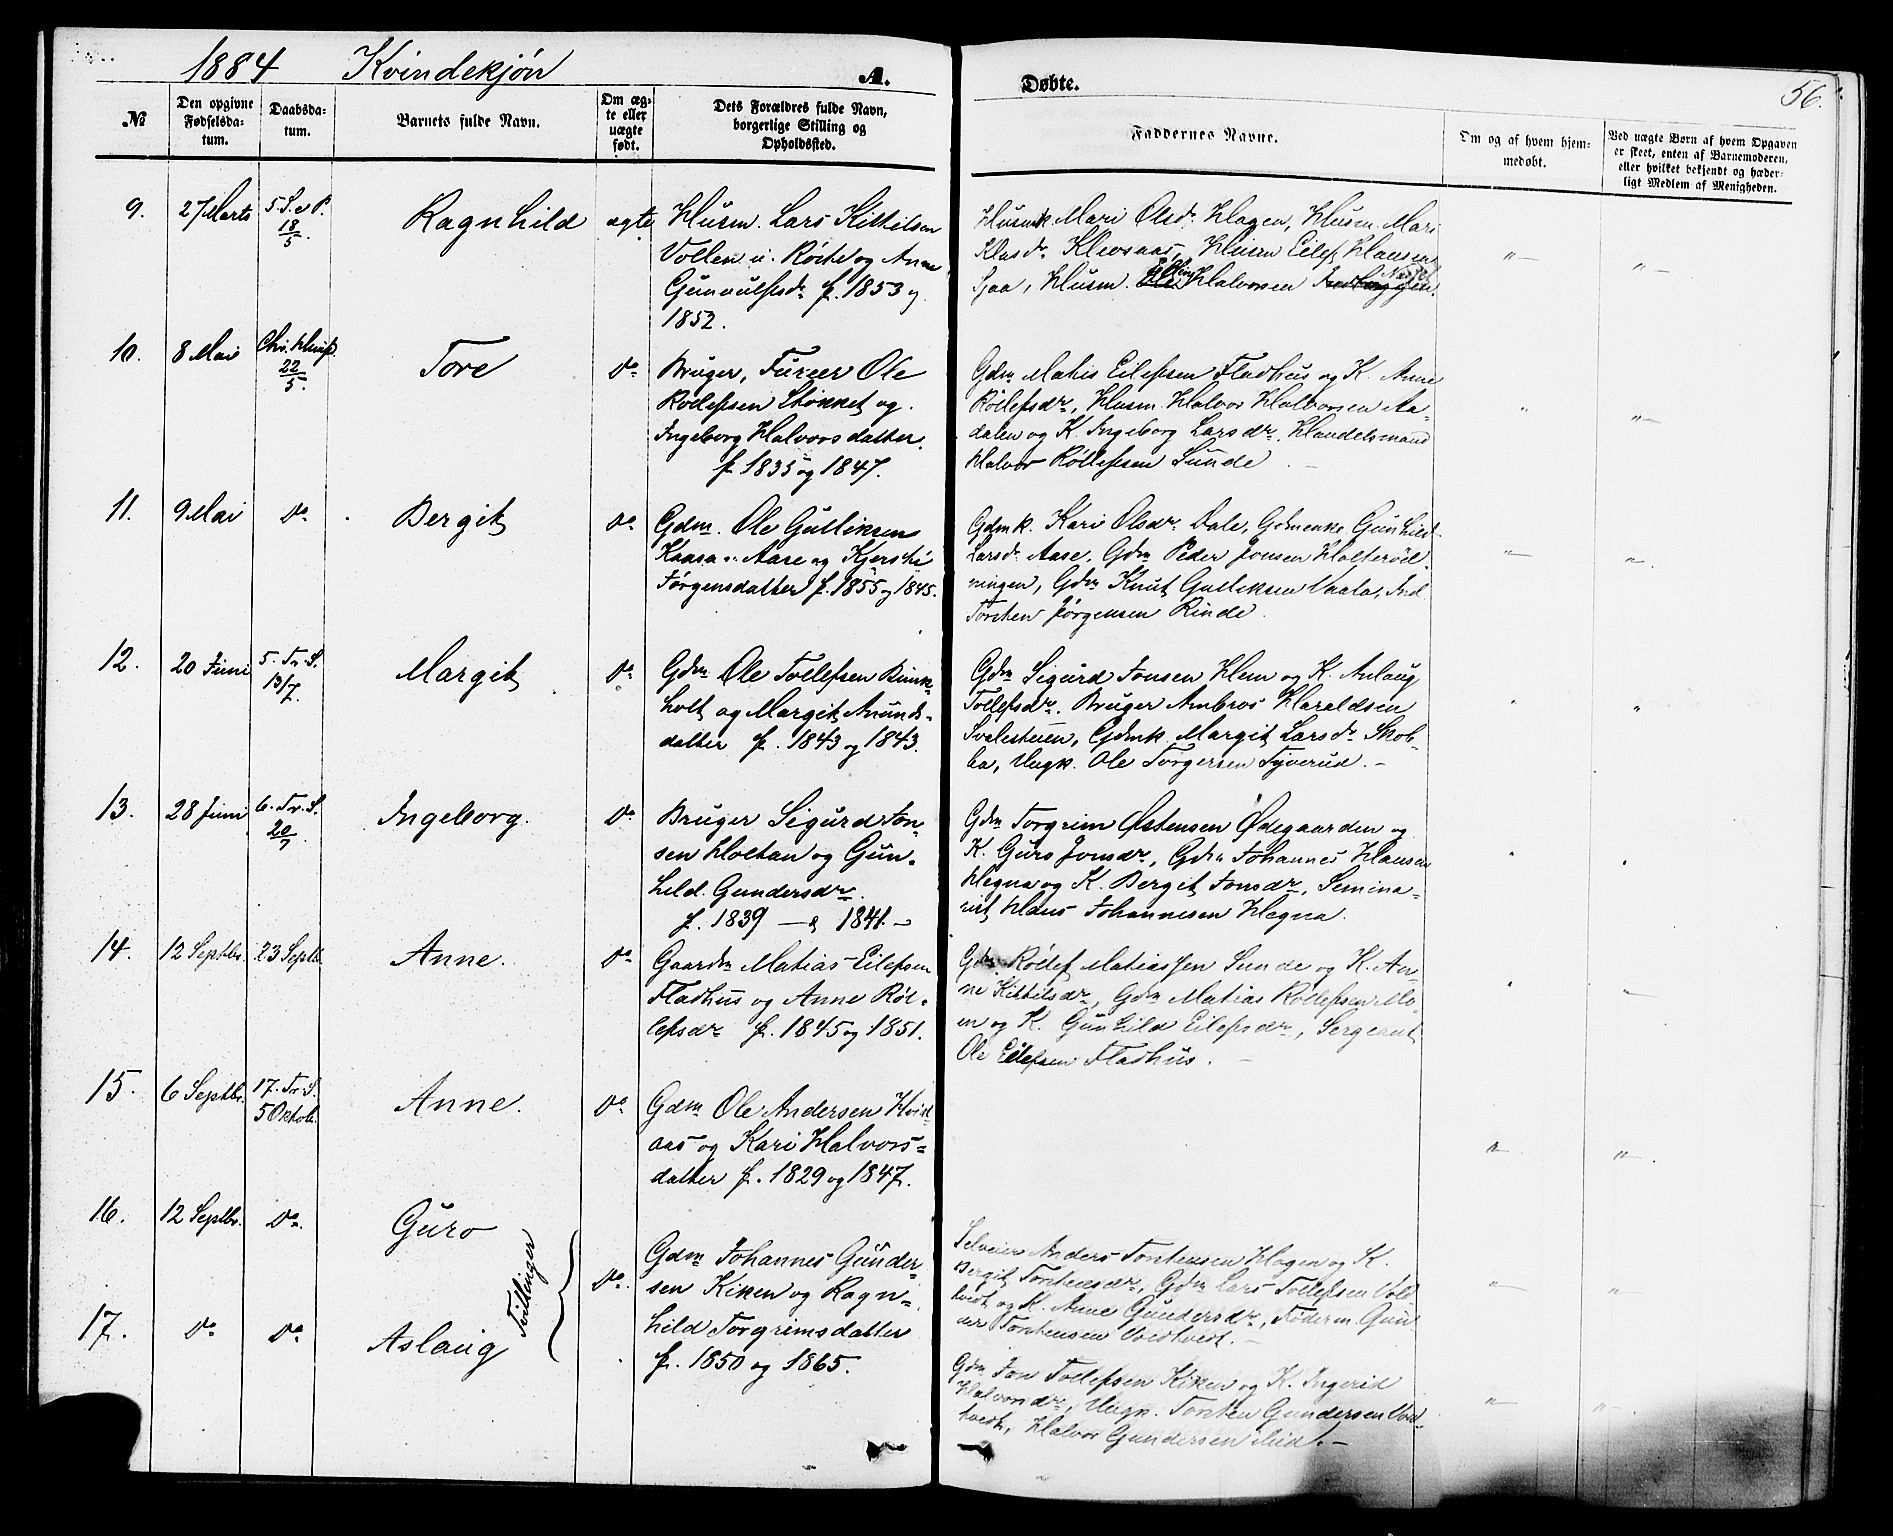 1884 Kvindekjøn
A.
Døbte.
56.
№
Den opgivne Fødselsdatum.
Daabsdatum.
Barnets fulde Navn.
Om ægte eller uægte født.
Dets Forældres fulde Navn, borgerlige Stilling og Opholdssted.
Faddernes Navne.
Om og af hvem hjemmedøbt.
Ved uægte Børn af hvem Opgaven er skeet, enten af Barnemoderen, eller hvilket bekjendt og hæderligt Medlem af Menigheden.
9.
27 Marts
5. S. e. P.
18/5.
Ragnhild
ægte
Husm. Lars Kittilsen
Vollen u. Roite og Anne
Gunnulfsdr f. 1853 og
1852.
Husmk. Mari Olsdr Hagen, Husm. Mari
Klevsaas, Husm Eilef Hansen
Sjaa, Husm. Halvorsen
10.
8 Mai
Chr. Himf.
22/5.
Tore
Do
Bruger, Fureer Ole
Rollefsen Stokket og
Ingeborg Halvorsdatter.
f. 1835 og 1847.
Gdm Matis Eilefsen Fladhus og K. Anne
Röllefsdr, Husm. Halvor Halvorsen Aa-
dalen og K. Ingeborg Larsdr. Handelsmand
Halvor Röllefsen Sunde
11.
9 Mai
Do
Bergit
Do
Gdm. Ole Gulliksen
Kaasa u. Aase og Kjersti
Jörgensdatter f. 1855 og 1845.
Gdmk. Kari Olsdr Dale, Gdmenke Gunhild
Larsdr Aase, Gdm Peder Jonsen Holteröd-
ningen, Gdm Knut Gulliksen Vaala, Ind.
Torsten Jörgensen Rinde.
12.
20 Juni
5. Tr. S.
13/7.
Margit
Do
Gdm Ole Tollefsen Bunk-
holt og Margit Amunds-
datter f. 1843 og 1843.
Gdm Sigurd Jonsen Hem og K. Anlaug
Tollefsdr. Bruger Ambros Haraldsen
Svalestuen, Gdmk. Margit Larsdr Skob-
ba, Ungk. Ole Torgersen Tyverud. -
13.
28 Juni
6. Tr. S.
20/7
Ingeborg.
Do
Bruger Sigurd Jon-
sen Holtan og Gun-
hild Gundersdr.
f. 1839 — & 1841. -
Gdm Torgrim Østensen Ødegaarden og
K. Guro Jonsdr, Gdm Johannes Hansen
Hegna og K. Bergit Jonsdr, Semina-
rist Hans Johannesen Hegna.
14.
12 Septbr.
23 Septb.
Anne.
Do
Gaardm Matias Eilefsen
Fladhus og Anne Röl-
lefsdr f. 1845 og 1851.
Gdm. Röllef Matiassen Sunde og K. An-
ne Kittilsdr, Gdm Matias Röllefsen Mo-
en og K. Gunhild Eilefsdr, Sergeant
Ole Eilefsen Fladhus. -
15.
6 Septbr.
17. Tr. S.
5 Oktob.
Anne.
Do
Gdm Ole Andersen Hvid-
aas og Kari Halvors-
datter f. 1829 og 1847.
16.
12 Septbr.
Do.
Guro
Tvillinger
Do.
Gdm Johannes Gunder-
sen Kiken og Ragn-
hild Torgrimsdatter
f. 1850 og 1865.
Selveier Anders Torstensen Hagen og K.
Bergit Torstensdr, Gdm Lars Tollefsen Vold-
tvedt og K. Anne Gundersdr, Föderm. Gun-
der Torstensen Voldtvedt. -
17.
Do
Do
Aslaug
Gdm Jon Tollefsen Kiken og K. Ingerid
Halvorsdr, Ungk. Torsten Gundersen Vold-
tvedt, Halvor Gundersen ibid. -